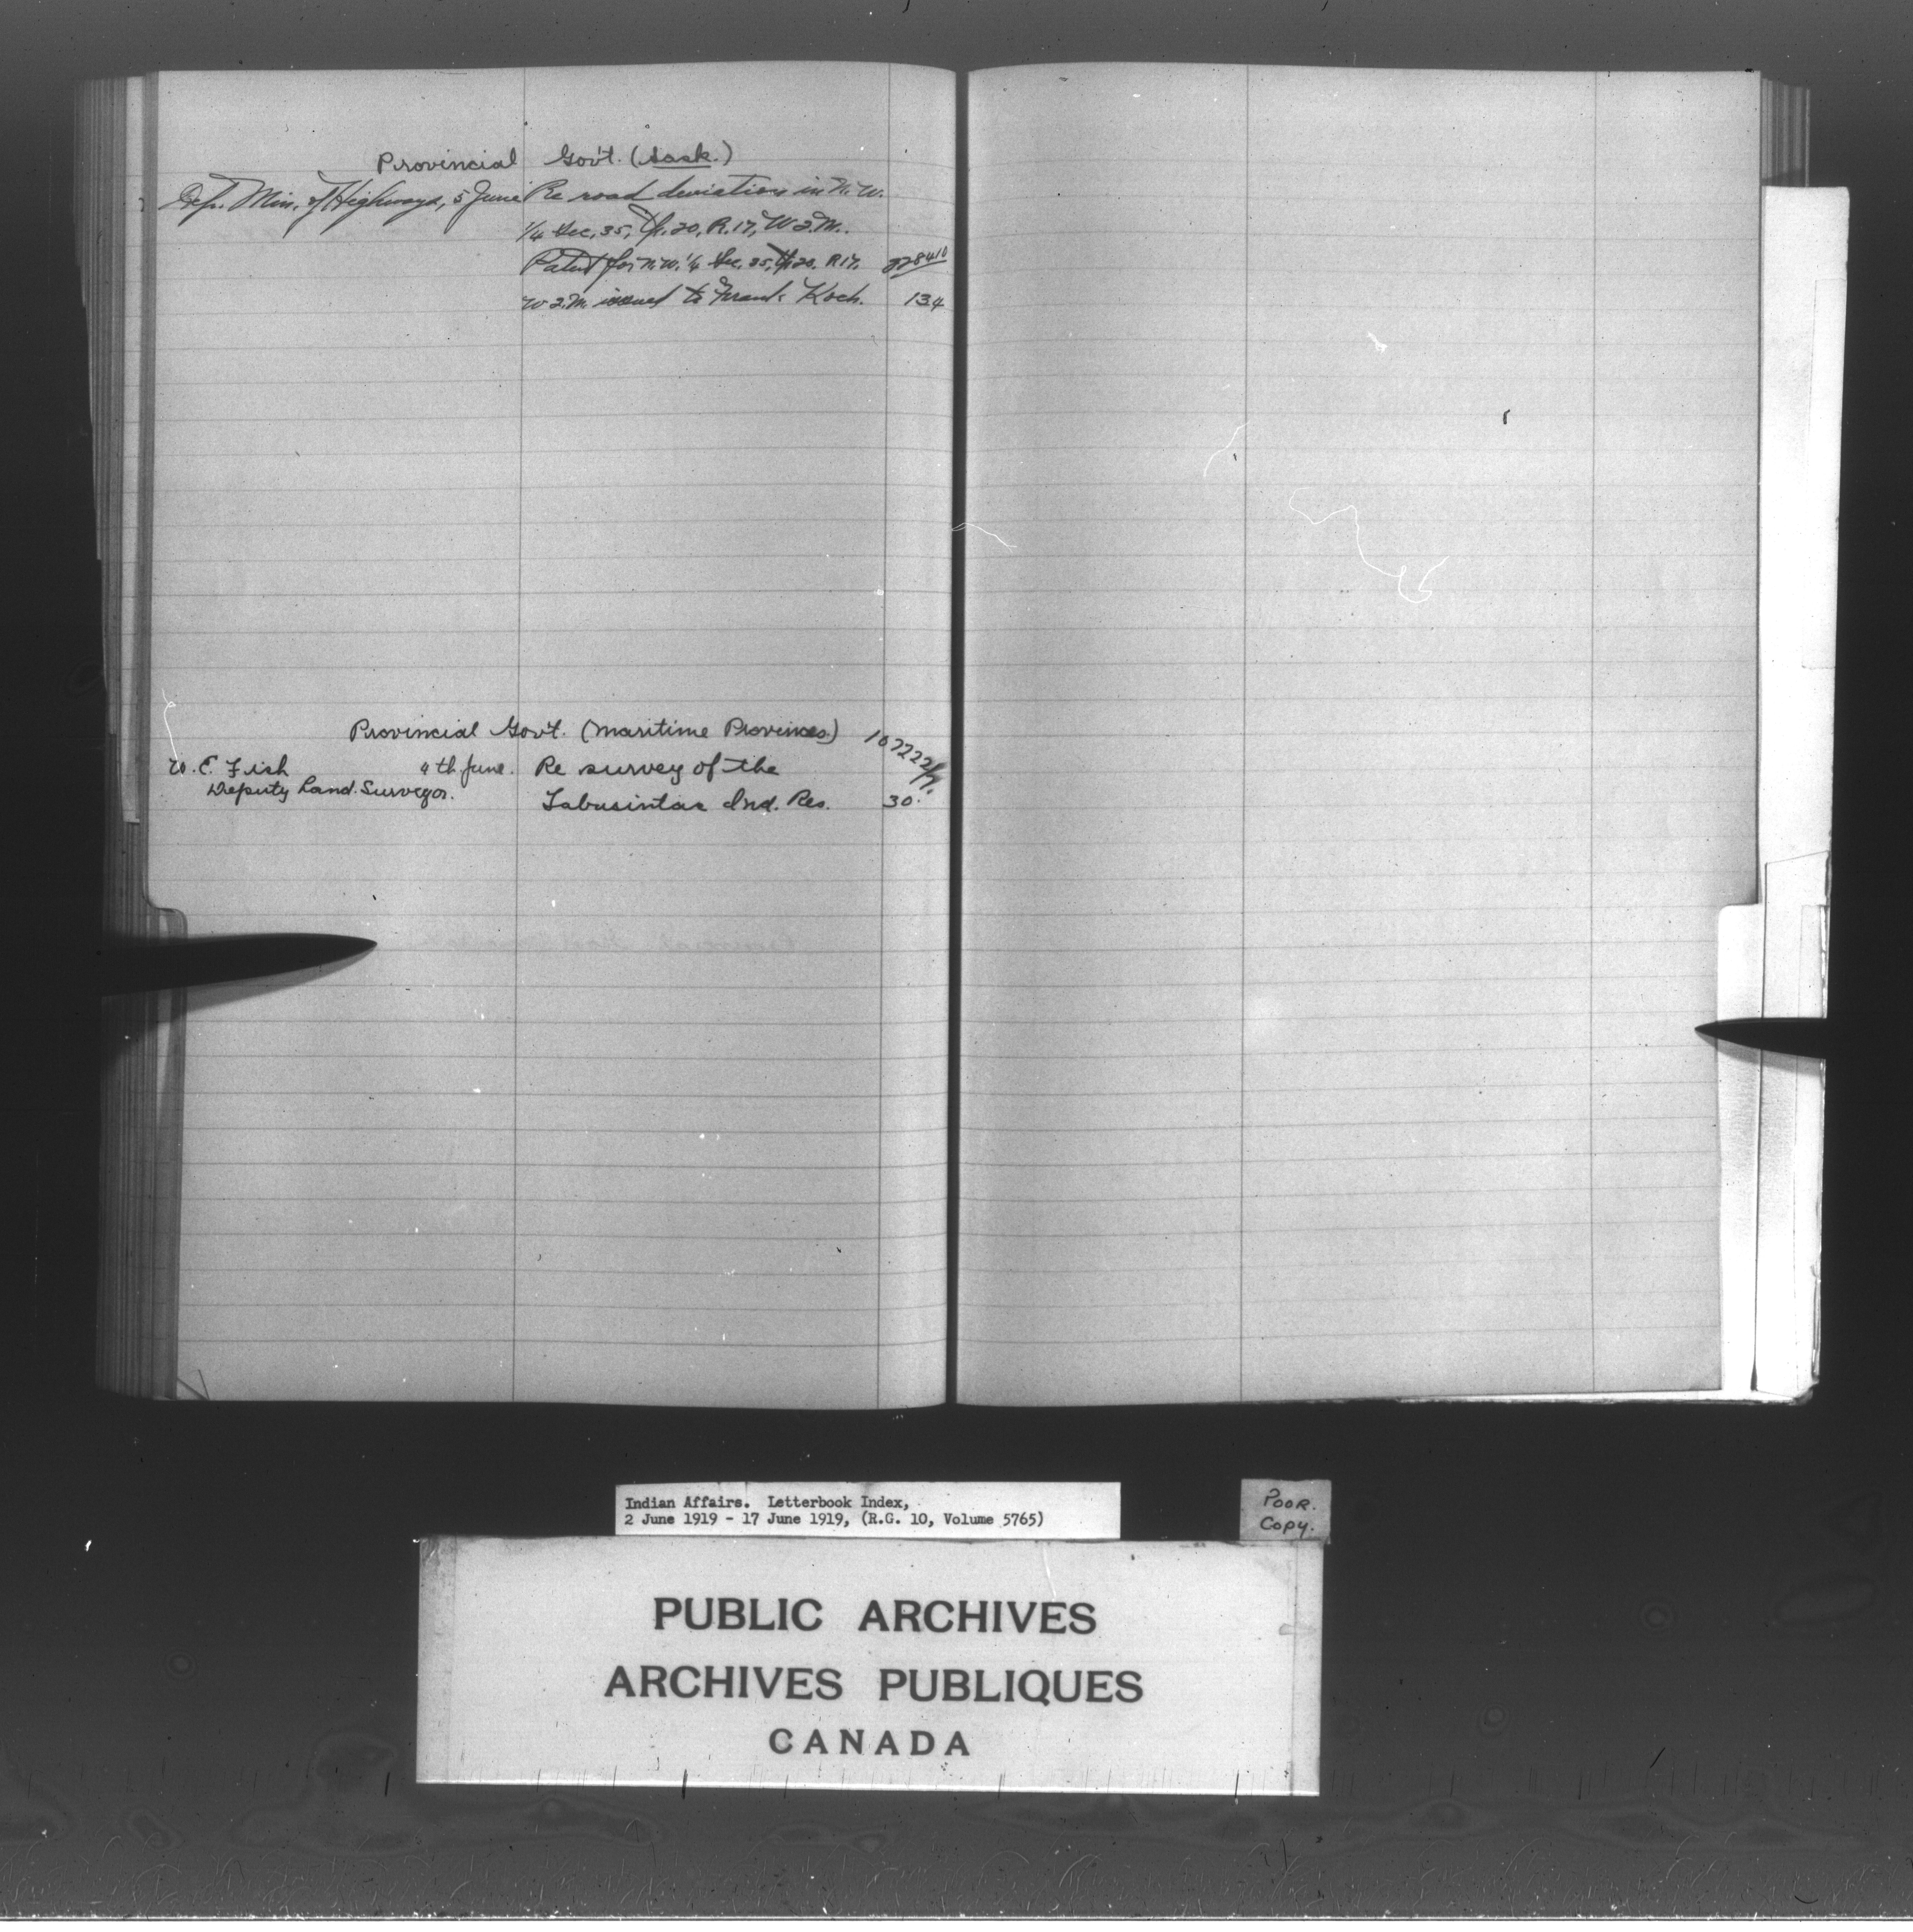 Provincial Gov't. (Sask.)
Dep. Min. of Highways, 5 June Re road deviation in N.W.
1/4 Sec. 35, Tp. 20, R. 17, W 2. M..
Patent for N.W. 1/4 Sec. 35, Tp 20. R 17.
W 2. M. issued to Frank Koch. 134
Provincial Gov't. (Maritime Provinces)
W. E. Fish 4th June. Re survey of the
Deputy Land Surveyor.
Tabusintac Ind. Res. 30.
Indian Affairs. Letterbook Index,
2 June 1919 - 17 June 1919, (R.G. 10, Volume 5765)
POOR.
Copy.
PUBLIC ARCHIVES
ARCHIVES PUBLIQUES
CANADA